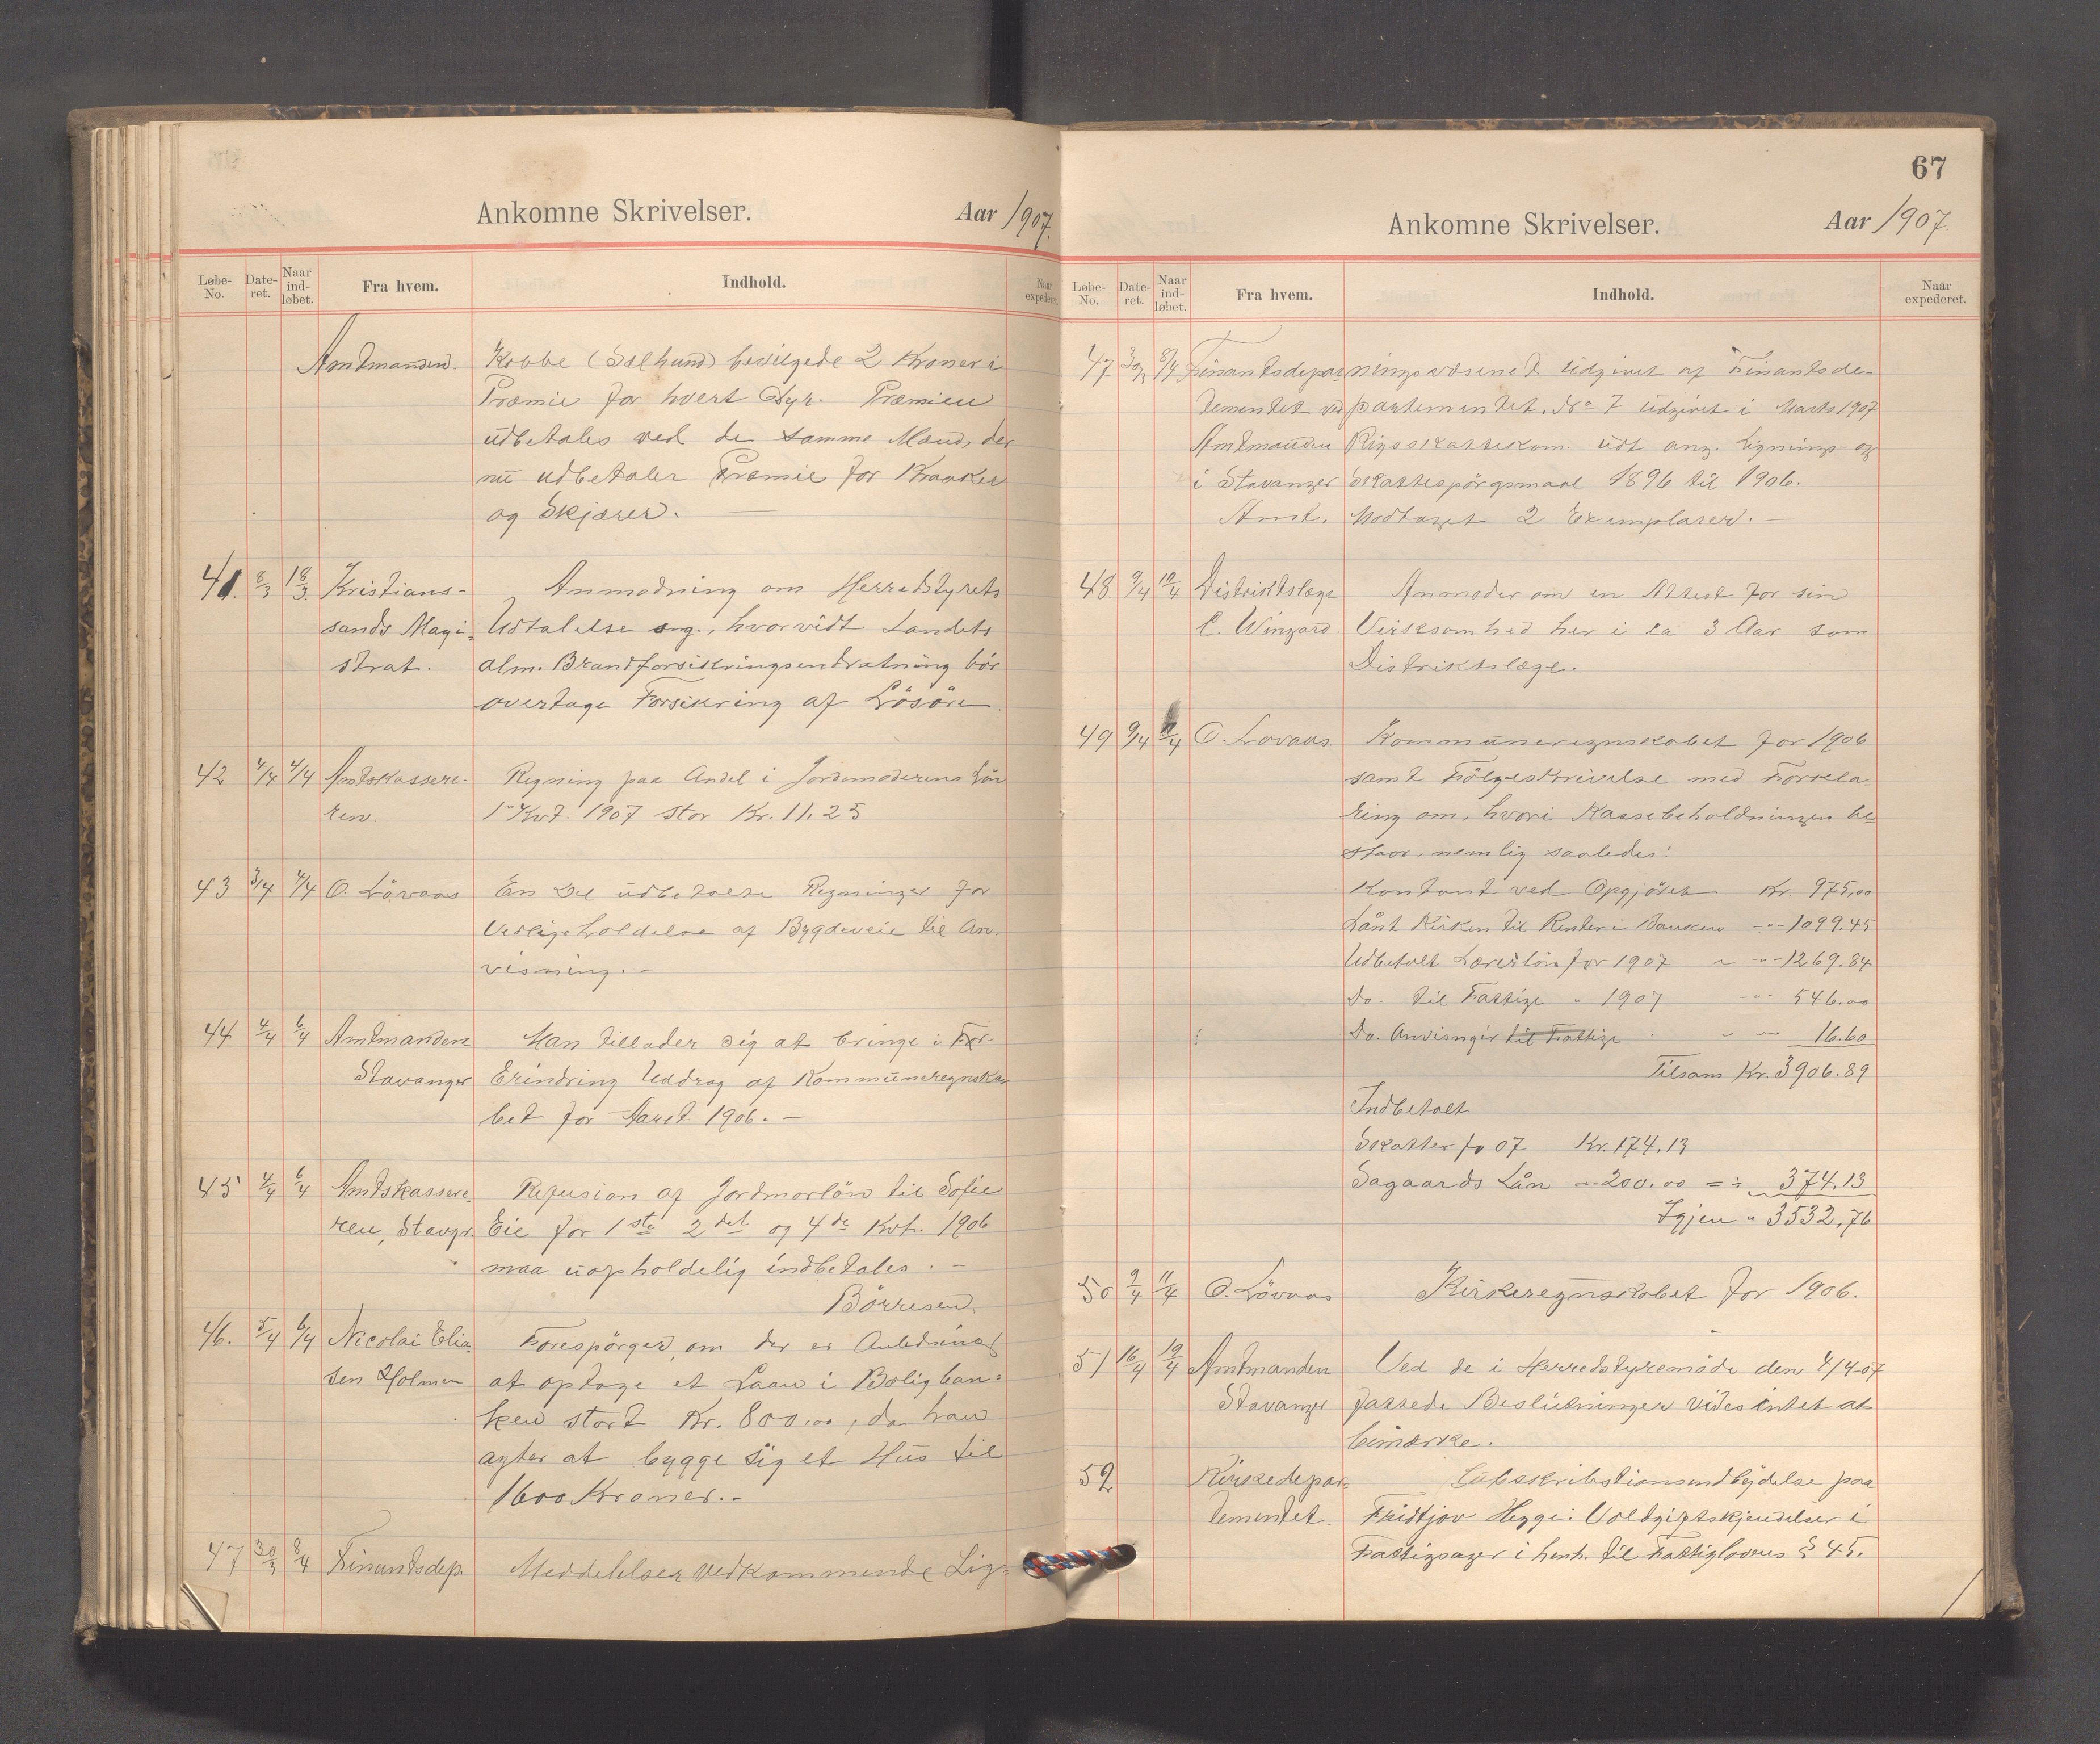 Ankomne Skrivelser. Aar 1907.
Løbe-No. Date-ret. Naar ind-løbet. Fra hvem. Indhold. Naar expederet.
Amtmanden. Kobbe (Sælhund) bevilgede 2 Kroner i
Præmie for hvert Dyr. Præmien
udbetales ved de samme Mænd, der
nu udbetaler Præmie for Kraaker
og Skjærer.
41. 8/3 18/3 Kristians- Anmodning om Herredstyrets
sands Magi- Udtalelse ang., hvorvidt Landets
strat. alm. Brandforsikringsindretning bör
overtage Forsikring af Lösöre.
42 4/4 4/4 Amtskassere- Regning paa Andel i Jordemoderens Lön
ren. 1ste Kvt. 1907 stor Kr. 11.25
43 3/4 4/4 O. Lövaas En Del udbetalte Regninger for
Vedligeholdelse af Bygdeveie til An-
visning. -
44 4/4 6/4 Amtmanden Man tillader sig at bringe i For-
Stavanger Erindring Uddrag af Kommuneregnska-
bet for Aaret 1906. -
45 4/4 6/4 Amtskassere- Refusion af Jordmorlön til Sofie
ren, Stavgr. Eie for 1ste 2det og 4de Kvt. 1906
maa uopholdelig indbetales. -
Börresen.
46. 5/4 6/4 Nicolai Elia- Forespörger, om der er Anledning
sen Holmen at optage et Laan i Boligban-
ken stort Kr. 800.00, da han
agter at bygge sig et Hus til
1600 Kroner. -
47 30/3 8/4 Finantsdep. Meddelelser vedkommende Lig-
67
Ankomne Skrivelser. Aar 1907.
Løbe-No. Date-ret. Naar ind-løbet. Fra hvem. Indhold. Naar expederet.
47 30/3 8/4 Finantsdepar- ningsvæsenet udgivet af Finantsde-
tementet ved partementet. No 7 udgivet i Marts 1907
Amtmanden Rigsskattekom. udt. ang. Lignings- og
i Stavanger Skattespörgsmaal 1896 til 1906.
Amt. Modtaget 2 Exemplarer. -
48. 9/4 10/4 Distriktslæge Anmoder om en Attest for sin
C. Wingard Virksomhed her i ca 3 Aar som
Distriktslæge.
49 9/4 11/4 O. Lovaas. Kommuneregnskabet for 1906
samt Fölgeskrivelse med Forkla-
ring om, hvori Kassebeholdningen be-
staar, nemlig saaledes:
Kontant ved Opgjöret Kr. 975,00
Lånt Kirken til Renter i Banken -"- 1099.45
Udbetalt Lærerlön for 1907 " -"- 1269.84
Do. til Fattige " 1907 -"- 546.00
Do. Anvisngir til Fattige " " 16.60
Tilsam Kr. 3906.89
Indbetalt
Skatter for 07 Kr. 174.13
Sagaards Lån -"- 200.00 = ÷ 374.13
Igjen " 3532,76
50 9/4 11/4 O. Lövaas Kirkeregnskabet for 1906.
51 16/4 19/4 Amtmanden Ved de i Herredstyremöde den 4/4 07
Stavanger fattede Beslutninger vides intet at
bemærke.
52 Kirkedepar- Subskribtionsindbydelse paa
tementet. Fridtjov Hegge: Voldgiftskjendelser i
Fattigsager i henh. til Fattiglovens § 45.